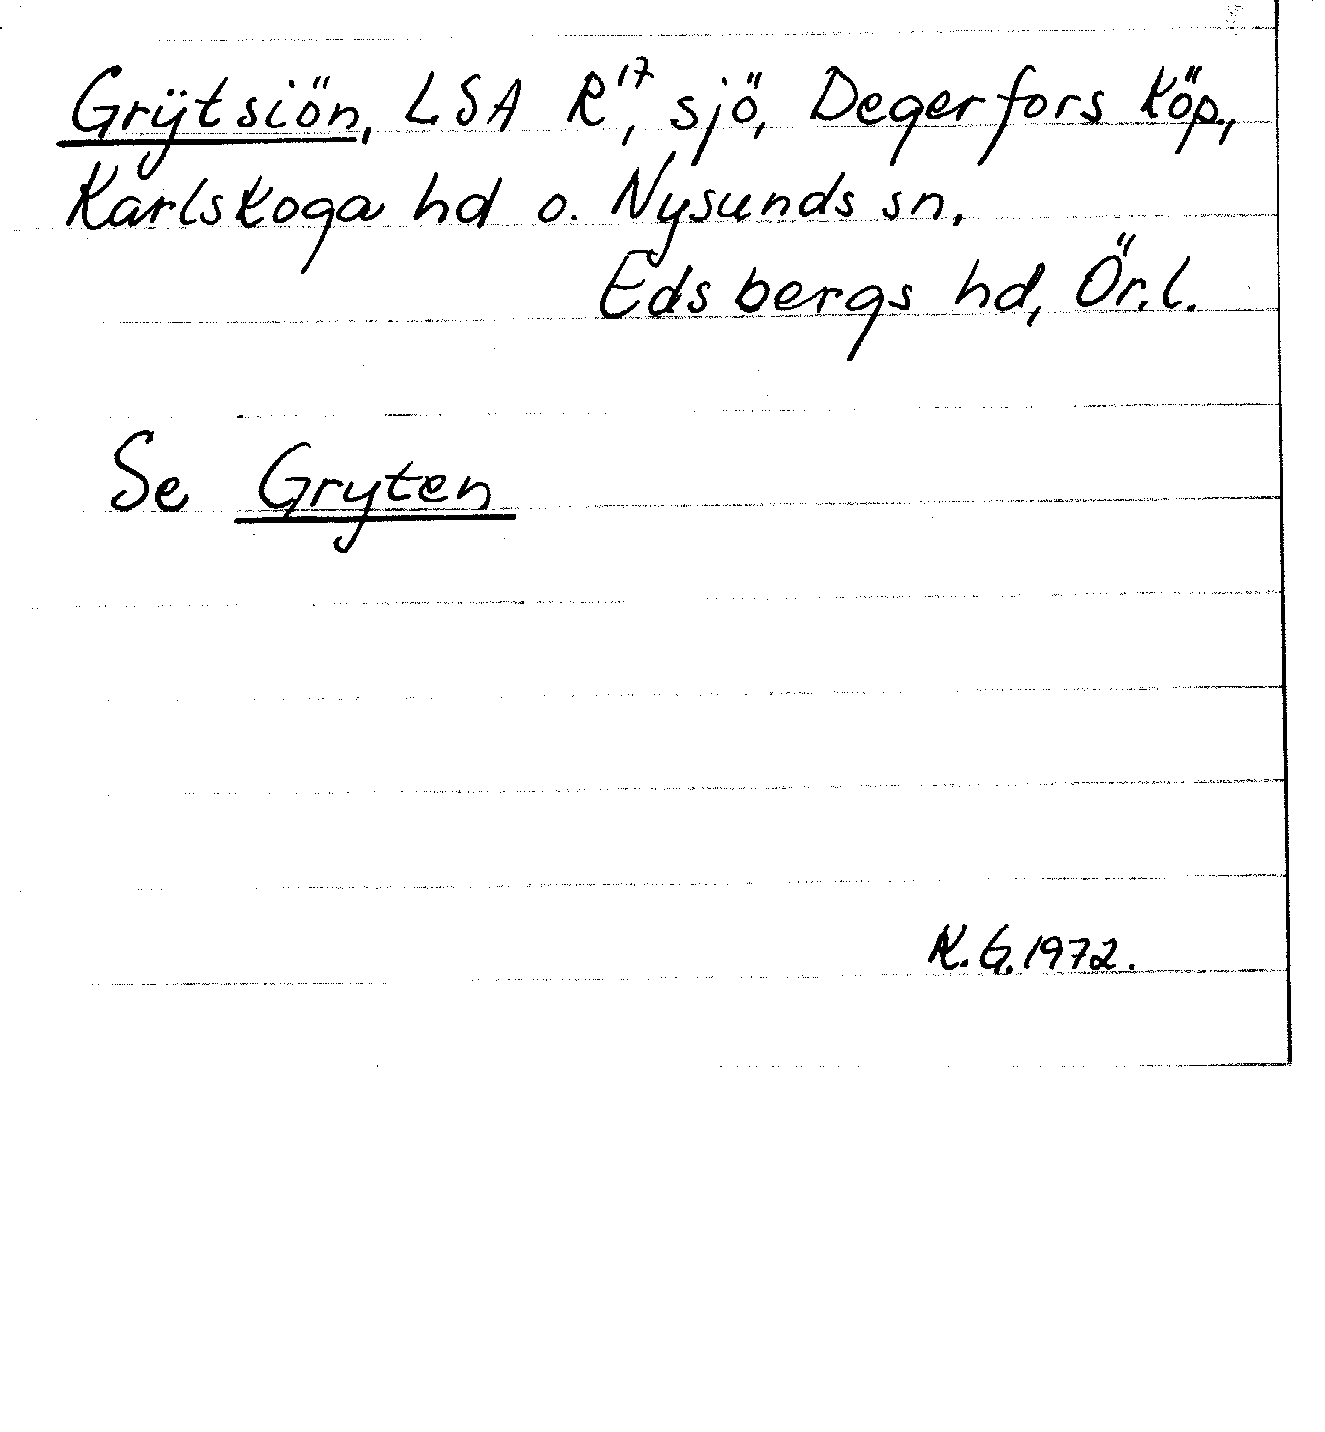 Grÿtsiön, LSA R¹⁷, sjö, Degerfors köp.,
Karlskoga hd o. Nysunds sn,
Edsbergs hd, Ör.l.
Se Gryten
K.G. 1972.